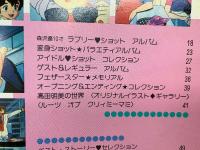 森沢優10才 ラブリー♥ショット アルバム 18
変身ショット★バラエティアルバム 23
アイドル♥ショット コレクション 27
ゲスト&レギュラー アルバム 32
フェザースター★メモリアル 38
オープニング&エンディング★コレクション 39
高田明美の世界 〈オリジナルイラスト♦ギャラリー〉 41
〈ルーツ オブ クリィミーマミ〉 47
ベストストーリー♥セレクション 49